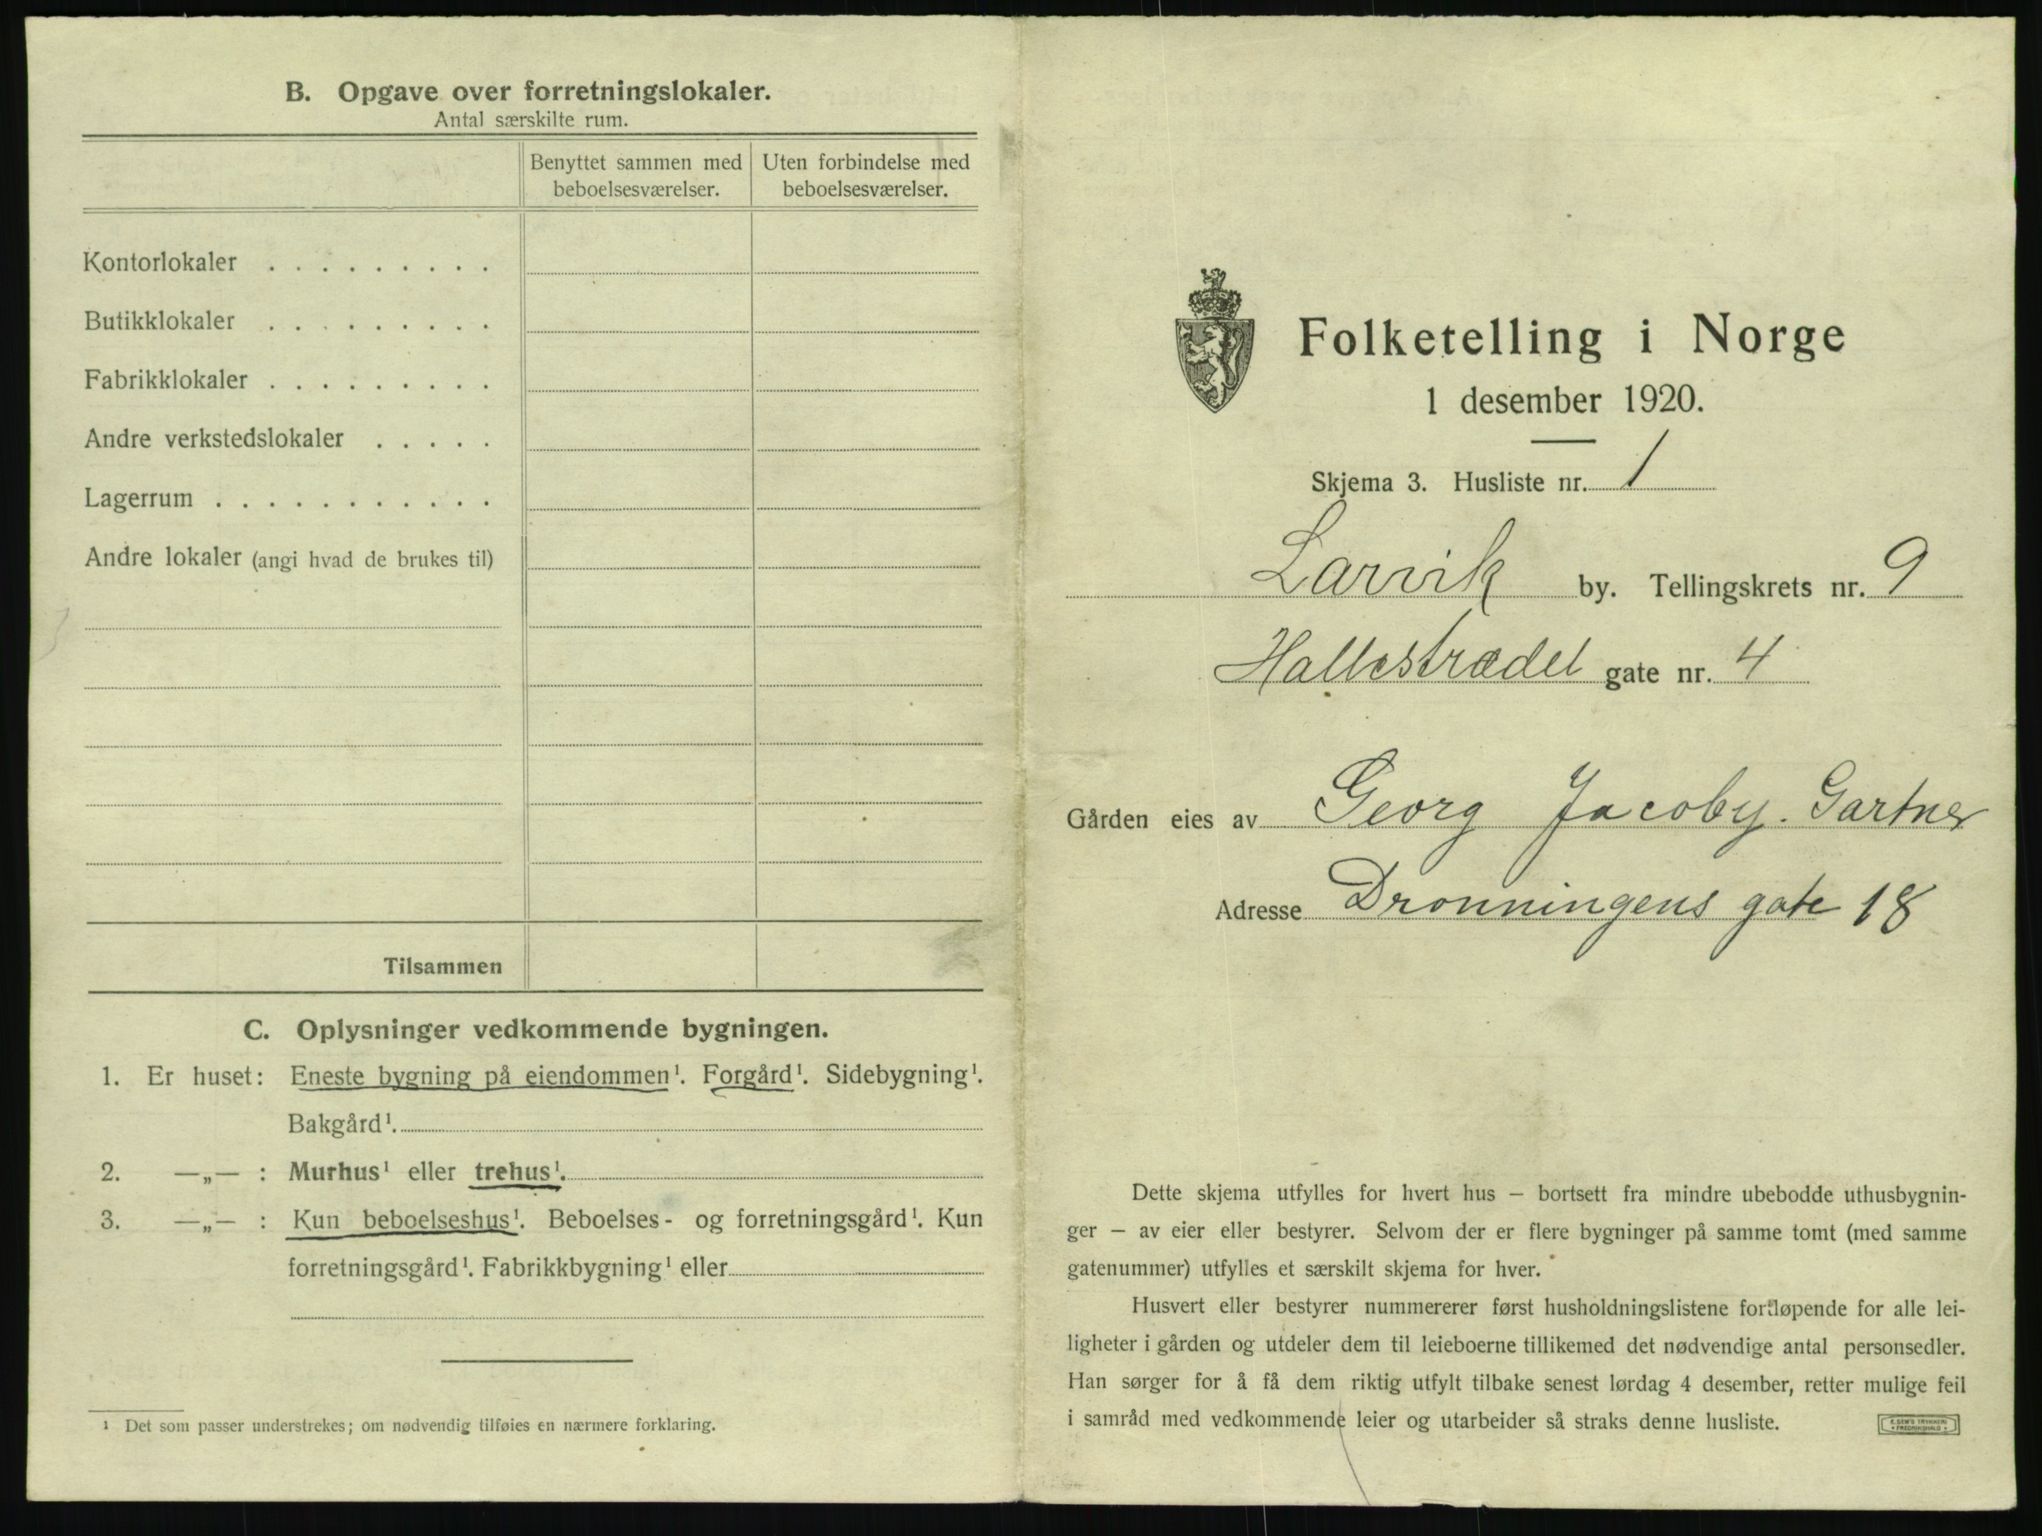 B. Opgave over forretningslokaler.
Antal særskilte rum.
Benyttet sammen med beboelsesværelser.
Uten forbindelse med beboelsesværelser.
Kontorlokaler . . . . . . . . .
Butikklokaler . . . . . . . . .
Fabrikklokaler . . . . . . . . .
Andre verkstedslokaler . . . . .
Lagerrum . . . . . . . . . . .
Andre lokaler (angi hvad de brukes til)
Tilsammen
C. Oplysninger vedkommende bygningen.
1. Er huset: Eneste bygning på eiendommen¹. Forgård¹. Sidebygning¹.
Bakgård¹.
2. —„— : Murhus¹ eller trehus¹.
3. —„— : Kun beboelseshus¹. Beboelses- og forretningsgård¹. Kun
forretningsgård¹. Fabrikkbygning¹ eller
¹ Det som passer understrekes; om nødvendig tilføies en nærmere forklaring.
Folketelling i Norge
1 desember 1920.
Skjema 3. Husliste nr. 1
Larvik by. Tellingskrets nr. 9
Hallestrædet gate nr. 4
Gården eies av Georg Jacoby. Gartner
Adresse Dronningens gate 18
Dette skjema utfylles for hvert hus – bortsett fra mindre ubebodde uthusbygnin-
ger – av eier eller bestyrer. Selvom der er flere bygninger på samme tomt (med samme
gatenummer) utfylles et særskilt skjema for hver.
Husvert eller bestyrer nummererer først husholdningslistene fortløpende for alle lei-
ligheter i gården og utdeler dem til leieboerne tillikemed det nødvendige antal personsedler.
Han sørger for å få dem riktig utfylt tilbake senest lørdag 4 desember, retter mulige feil
i samråd med vedkommende leier og utarbeider så straks denne husliste.
E. SEM'S TRYKKERI
• FREDRIKSHALD •